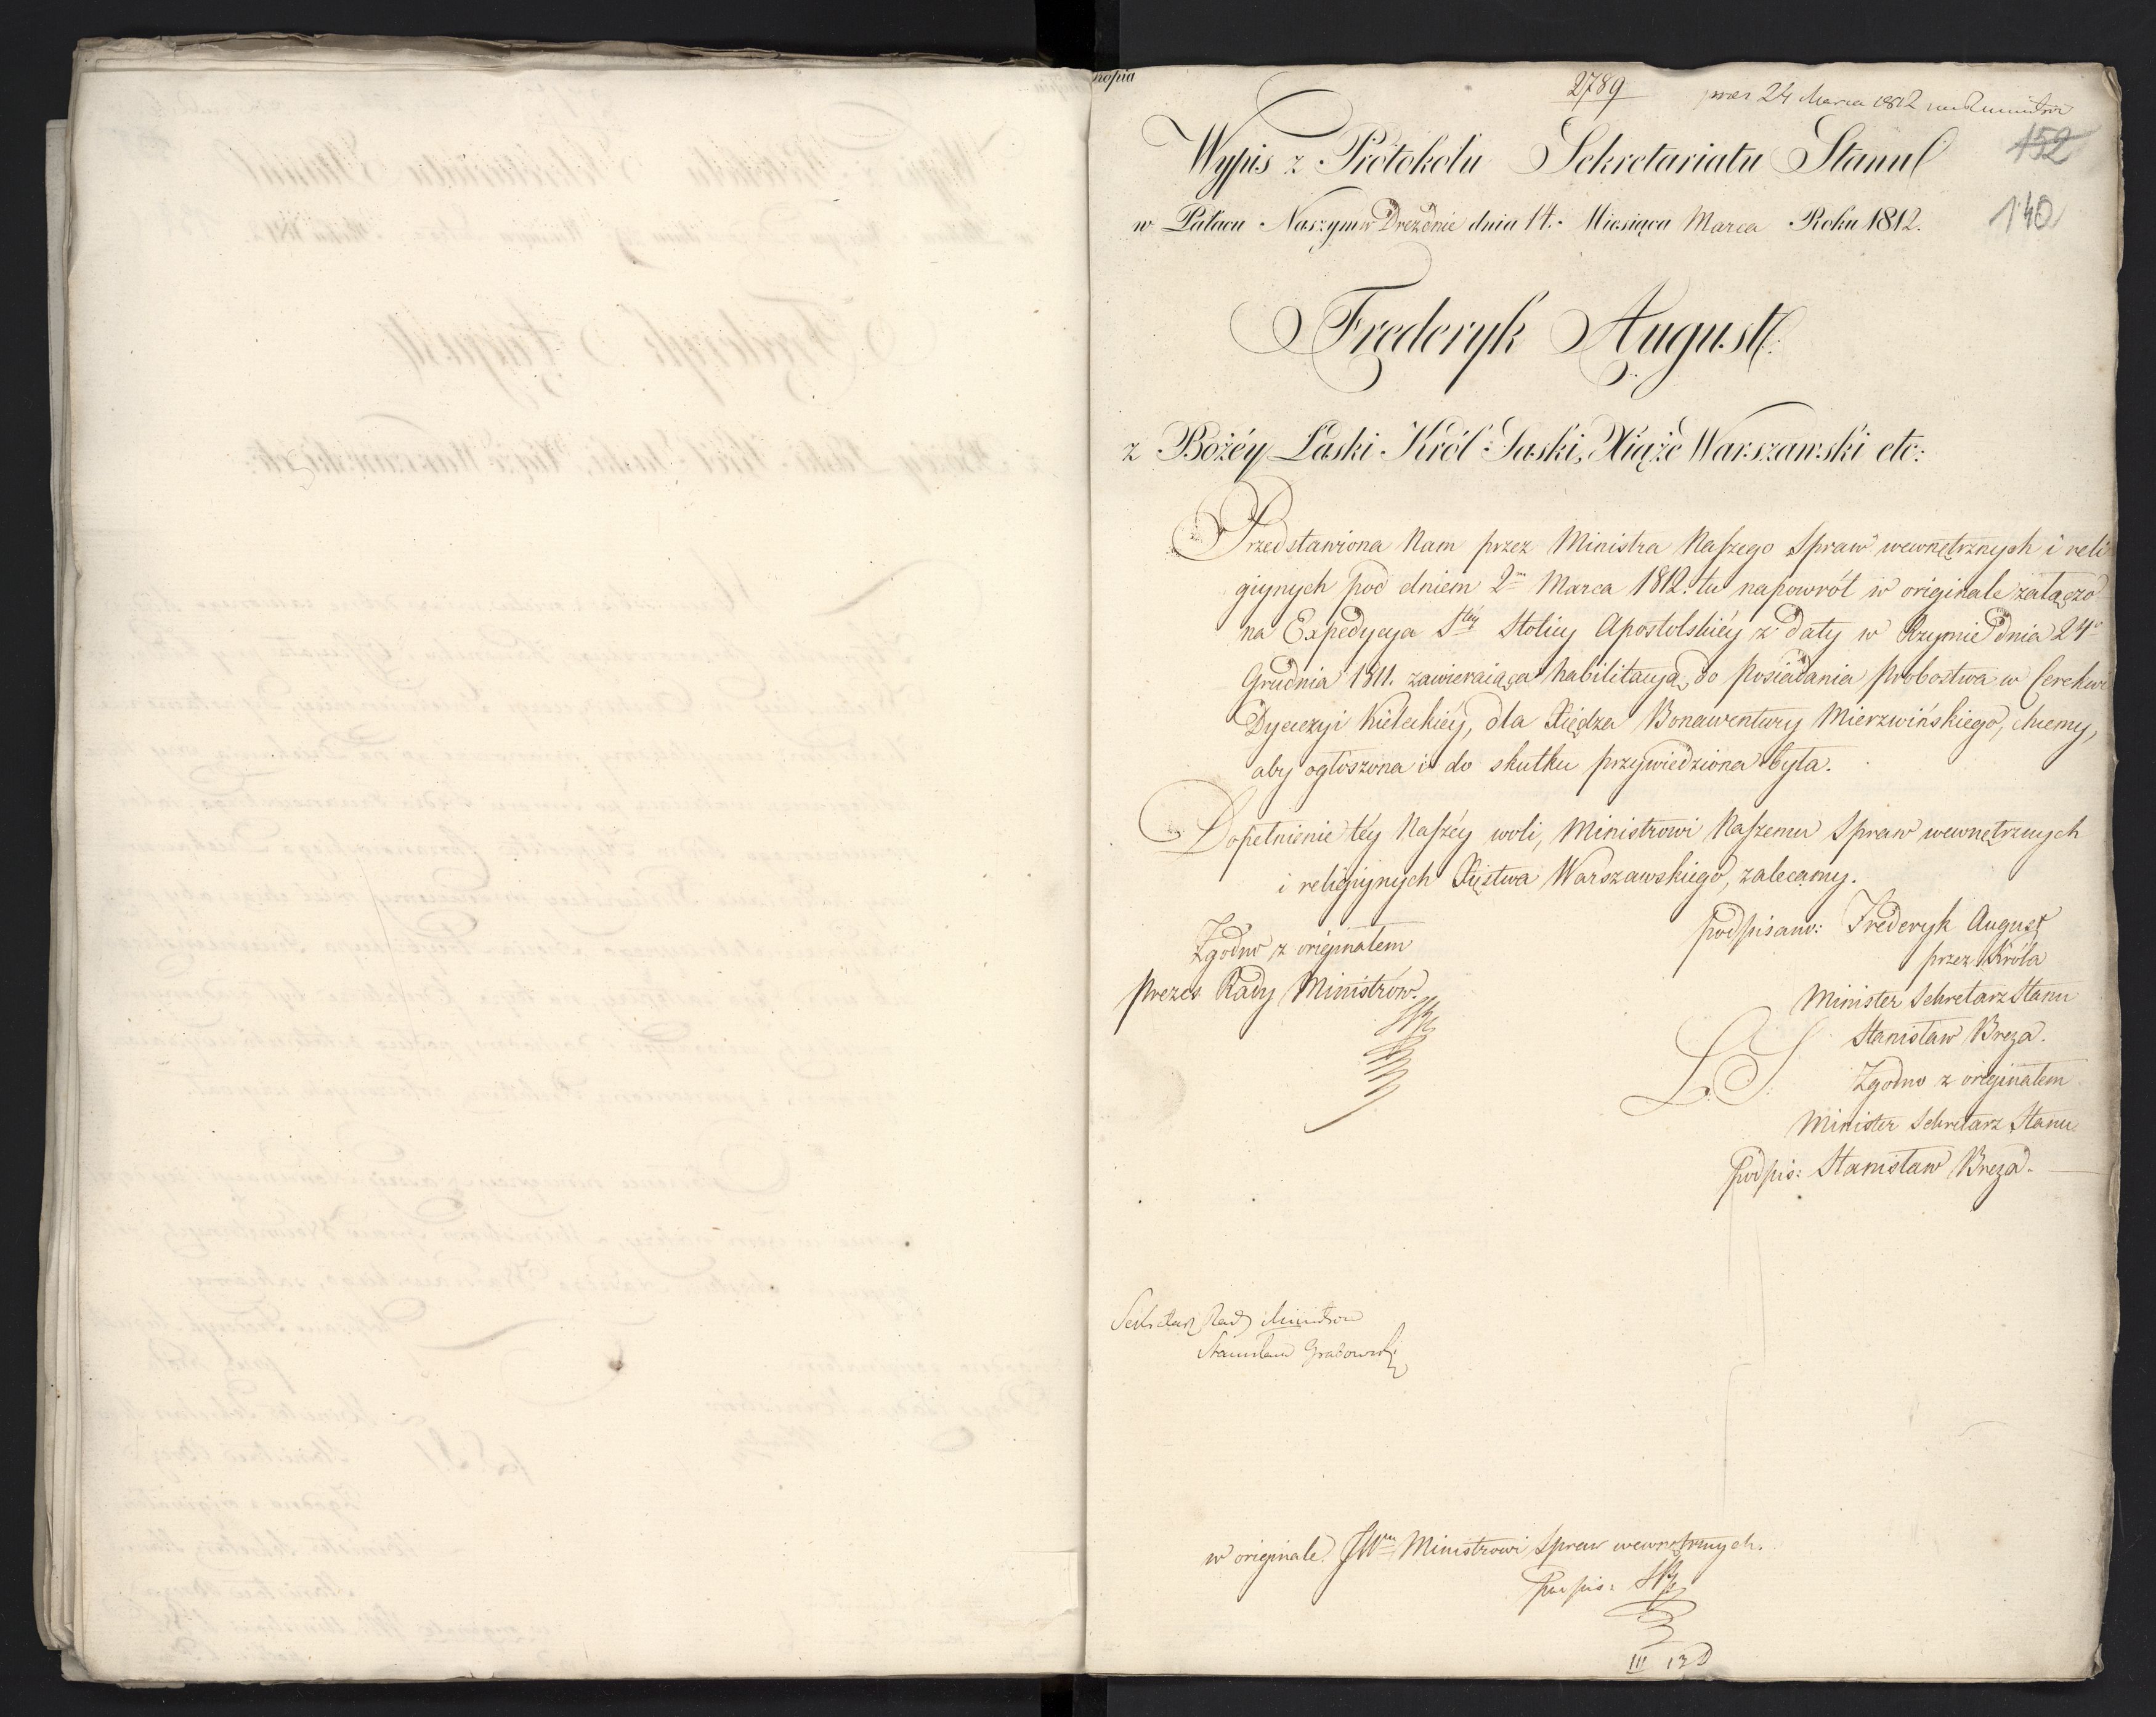 kopia
2789
pres 24 Marca 1812
152
140
Wypis z Protokołu Sekretariatu Stanu
w Pałacu Naszym w Dreźdnie dnia 14. Miesiąca Marca Roku 1812.
Frederyk August
z Bożéy Łaski Król Saski, Xiąże Warszawski etc:
Przedstawiona Nam przez Ministra Naszego Spraw wewnętrznych i reli
giynych pod dniem 2m Marca 1812. tu napowrót w originale załączo
na Expedycya Stéy Stolicy Apostolskiéy z daty w Rzymie dnia 24o
Grudnia 1811. zawieraiąca habilitacyą do posiadania probostwa w Cerekwi
Dyecezyi Kieleckiey, dla Xiędza Bonawentury Mierzwińskiego, chcemy,
aby ogłoszona i do skutku przywiedziona była.
Dopełnienie téy Naszéy woli, Ministrowi Naszemu Spraw wewnętrznych
i religiynych Xięstwa Warszawskiego, zalecamy.
podpisano: Frederyk August
przez Króla
Minister Sekretarz Stanu
Stanisław Breza.
L. S.
Zgodno z originałem
Minister Sekretarz Stanu
podpis: Stanisław Breza.
Zgodno z originałem
Prezes Rady Ministrów.
Sekretarz Rady Ministrów
Stanisław Grabowski
w originale JWmu Ministrowi Spraw wewnętrznych.
podpis:
III